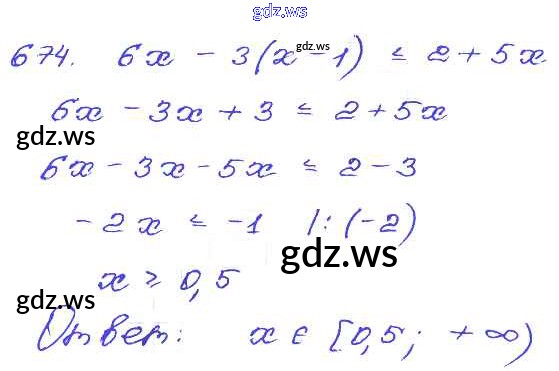 gdz.ws
674. 6x - 3(x - 1) ≤ 2 + 5x
gdz.ws
6x - 3x + 3 ≤ 2 + 5x
gdz.ws
6x - 3x - 5x ≤ 2 - 3
-2x ≤ -1 /: (-2)
gdz.ws
x ≥ 0,5
gdz.ws
Ответ: x ∈ [0,5; +∞)